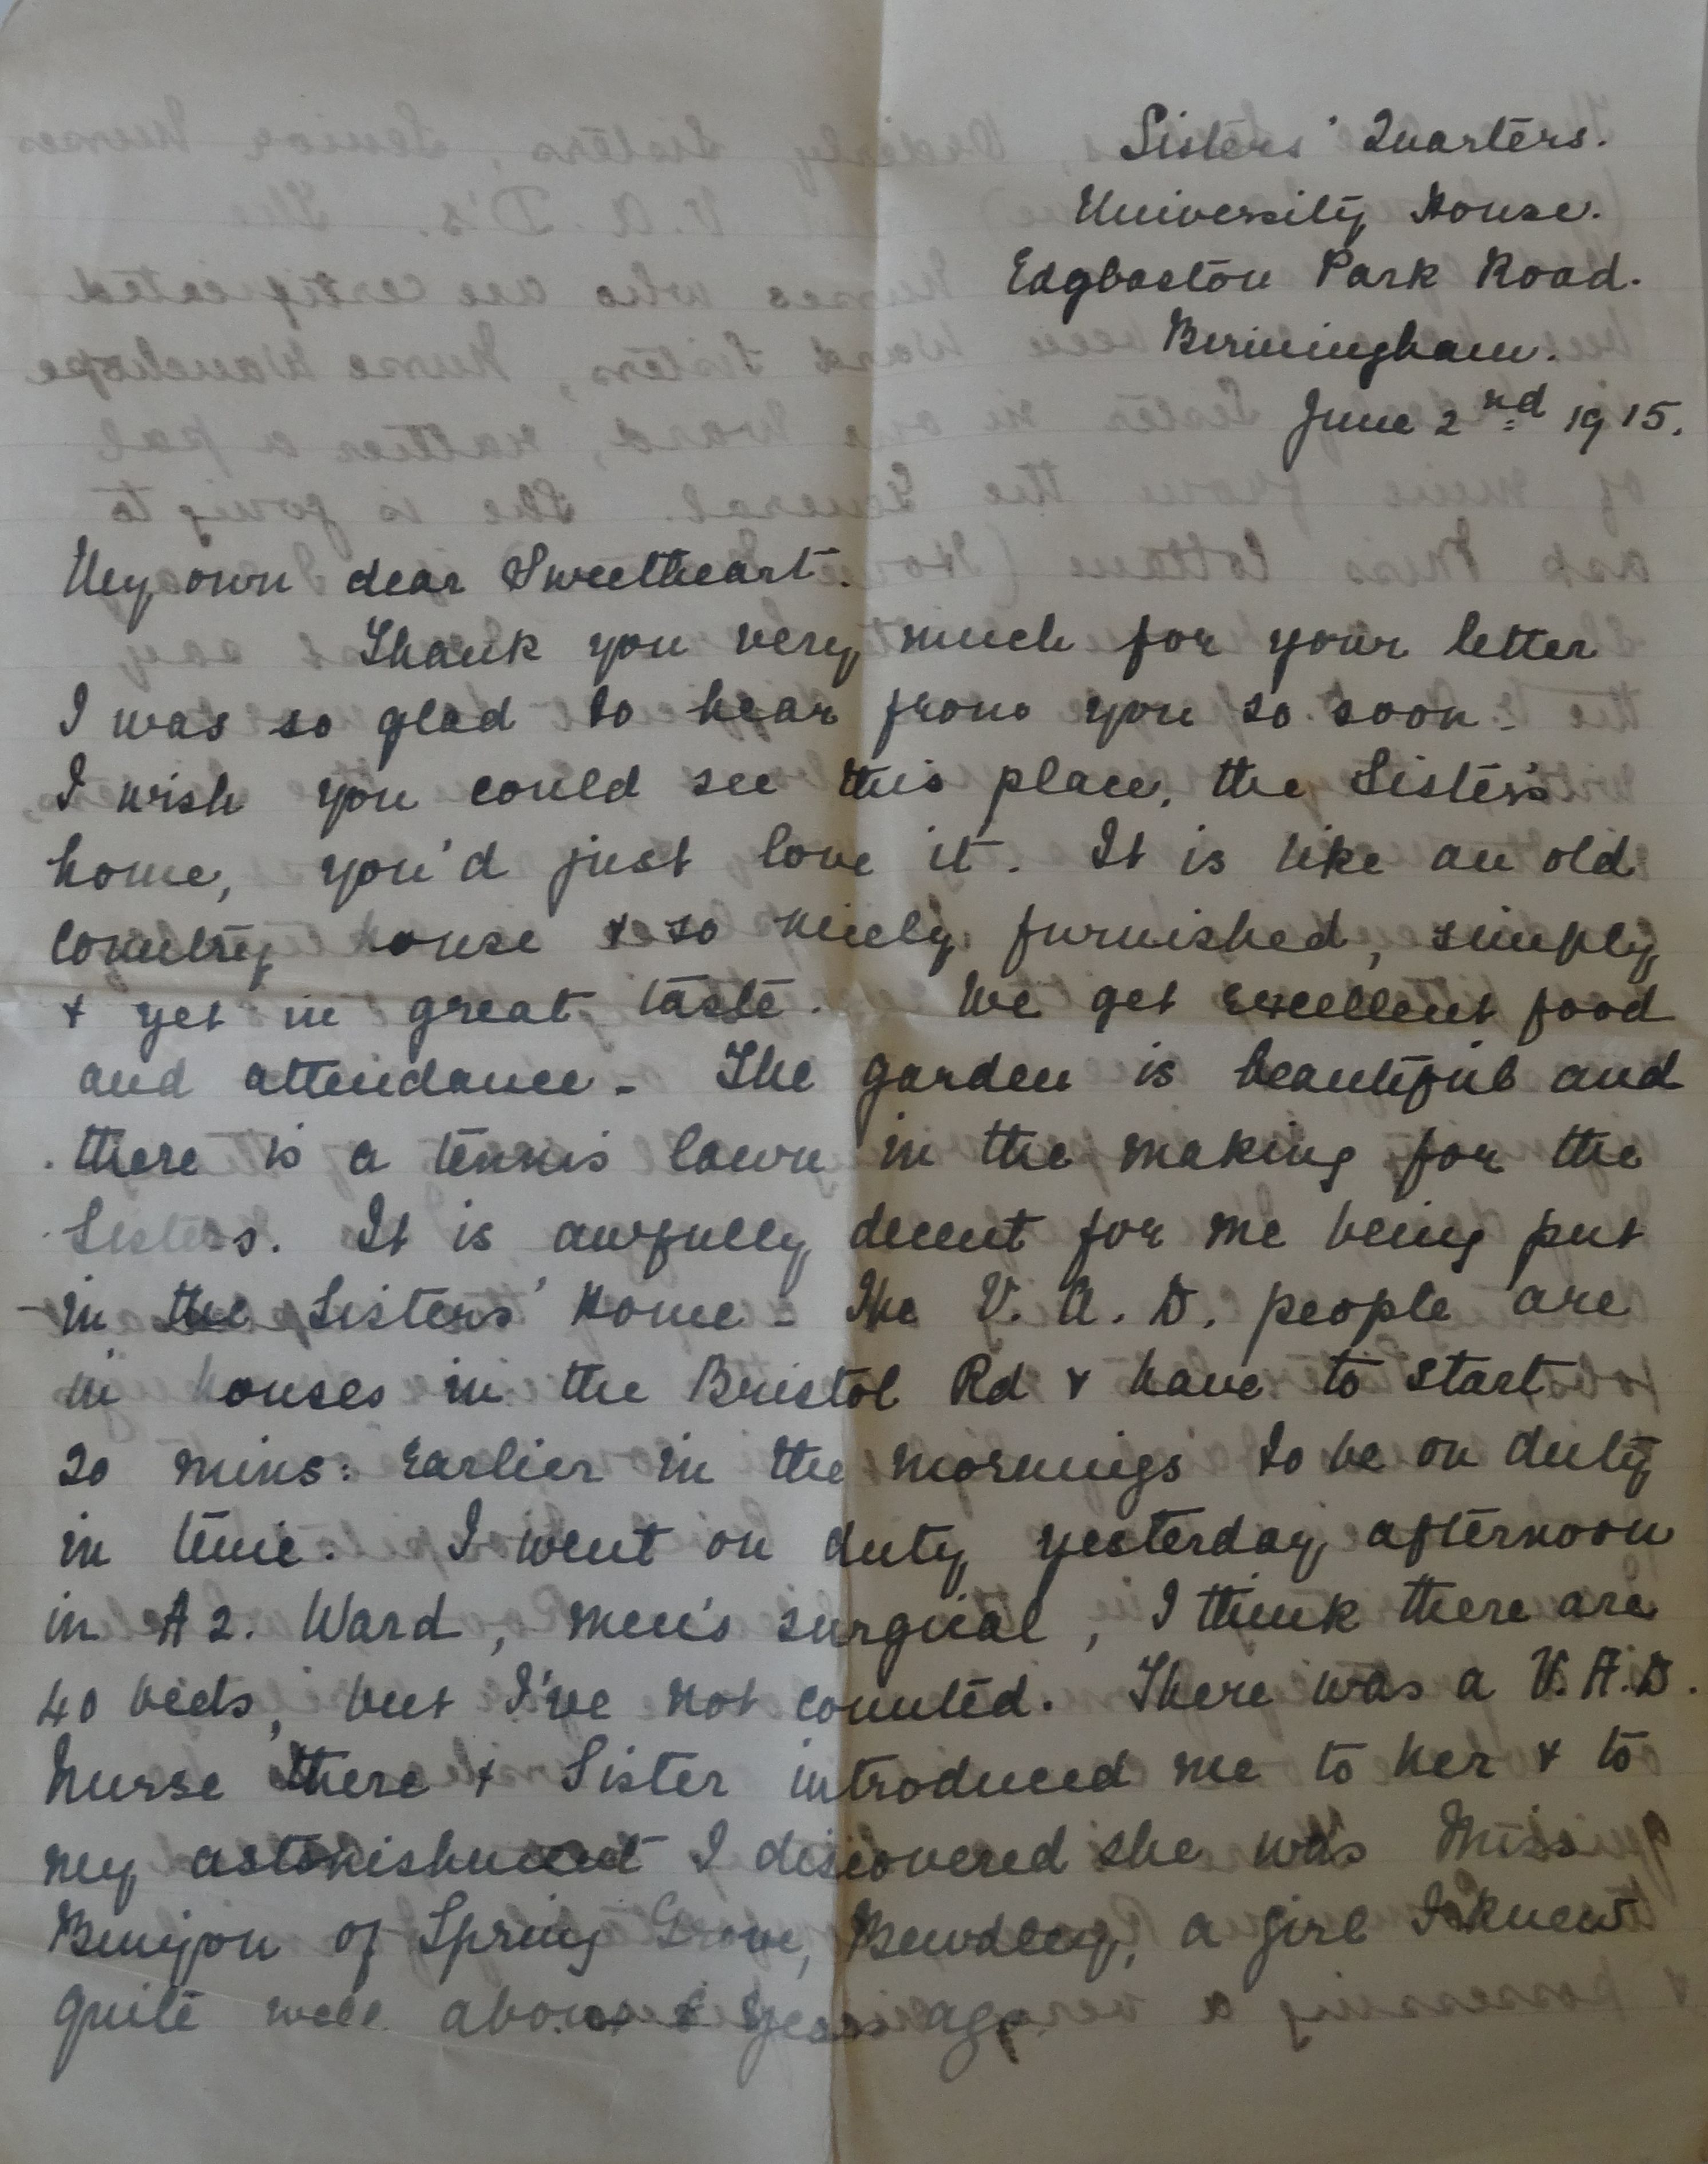 Sisters' Quarters.
University House.
Edgbaston Park Road.
Birmingham.
June 2nd 1915.
My own dear Sweetheart.
Thank you very much for your letter
I was so glad to hear from you so soon -
I wish you could see this place, the Sister's
home, you'd just love it. It is like an old
Country house & so nicely furnished, simply
& yet in great taste. We get excellent food
and attendance - The garden is beautiful and
there is a tennis lawn in the making for the
Sisters. It is awfully decent for me being put
in the Sisters' Home - The V. A. D. people are
in houses in the Bristol Rd & have to start
20 mins: earlier in the mornings to be on duty
in time. I went on duty yesterday afternoon
in A 2. Ward, men's surgical, I think there are
40 beds, but I've not counted. There was a V.A.D.
Nurse there & Sister introduced me to her & to
my astonishment I discovered she was Miss
of Spring Grove, Bewdley, a girl I knew
quite well about years ago